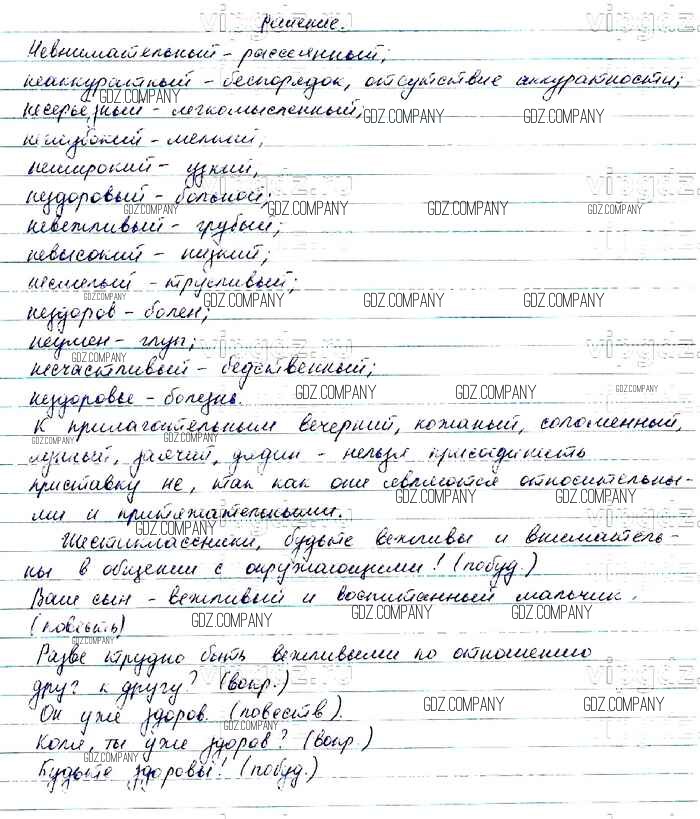 Решение.
Невнимательный - рассеянный;
неаккуратный - беспорядок, отсутствие аккуратности;
несерьезный - легкомысленный;
неглубокий - мелкий;
неширокий - узкий,
нездоровый - больной;
невежливый - грубый;
невысокий - низкий;
несмелый - трусливый;
нездоров - болен;
неумен - глуп;
несчастливый - бедственный;
нездоровье - болезнь.
К прилагательным вечерний, кожаный, соломенный,
лунный, заячий, дядин - нельзя присоединить
приставку не, так как они являются относительны-
ми и притяжательными.
Шестиклассники, будьте вежливы и вниматель-
ны в общении с окружающими! (побуд.)
Ваш сын - вежливый и воспитанный мальчик.
(повеств)
Разве трудно быть вежливыми по отношению
друг к другу? (вопр.)
Он уже здоров. (повеств).
Коля, ты уже здоров? (вопр.)
Будьте здоровы! (побуд.)